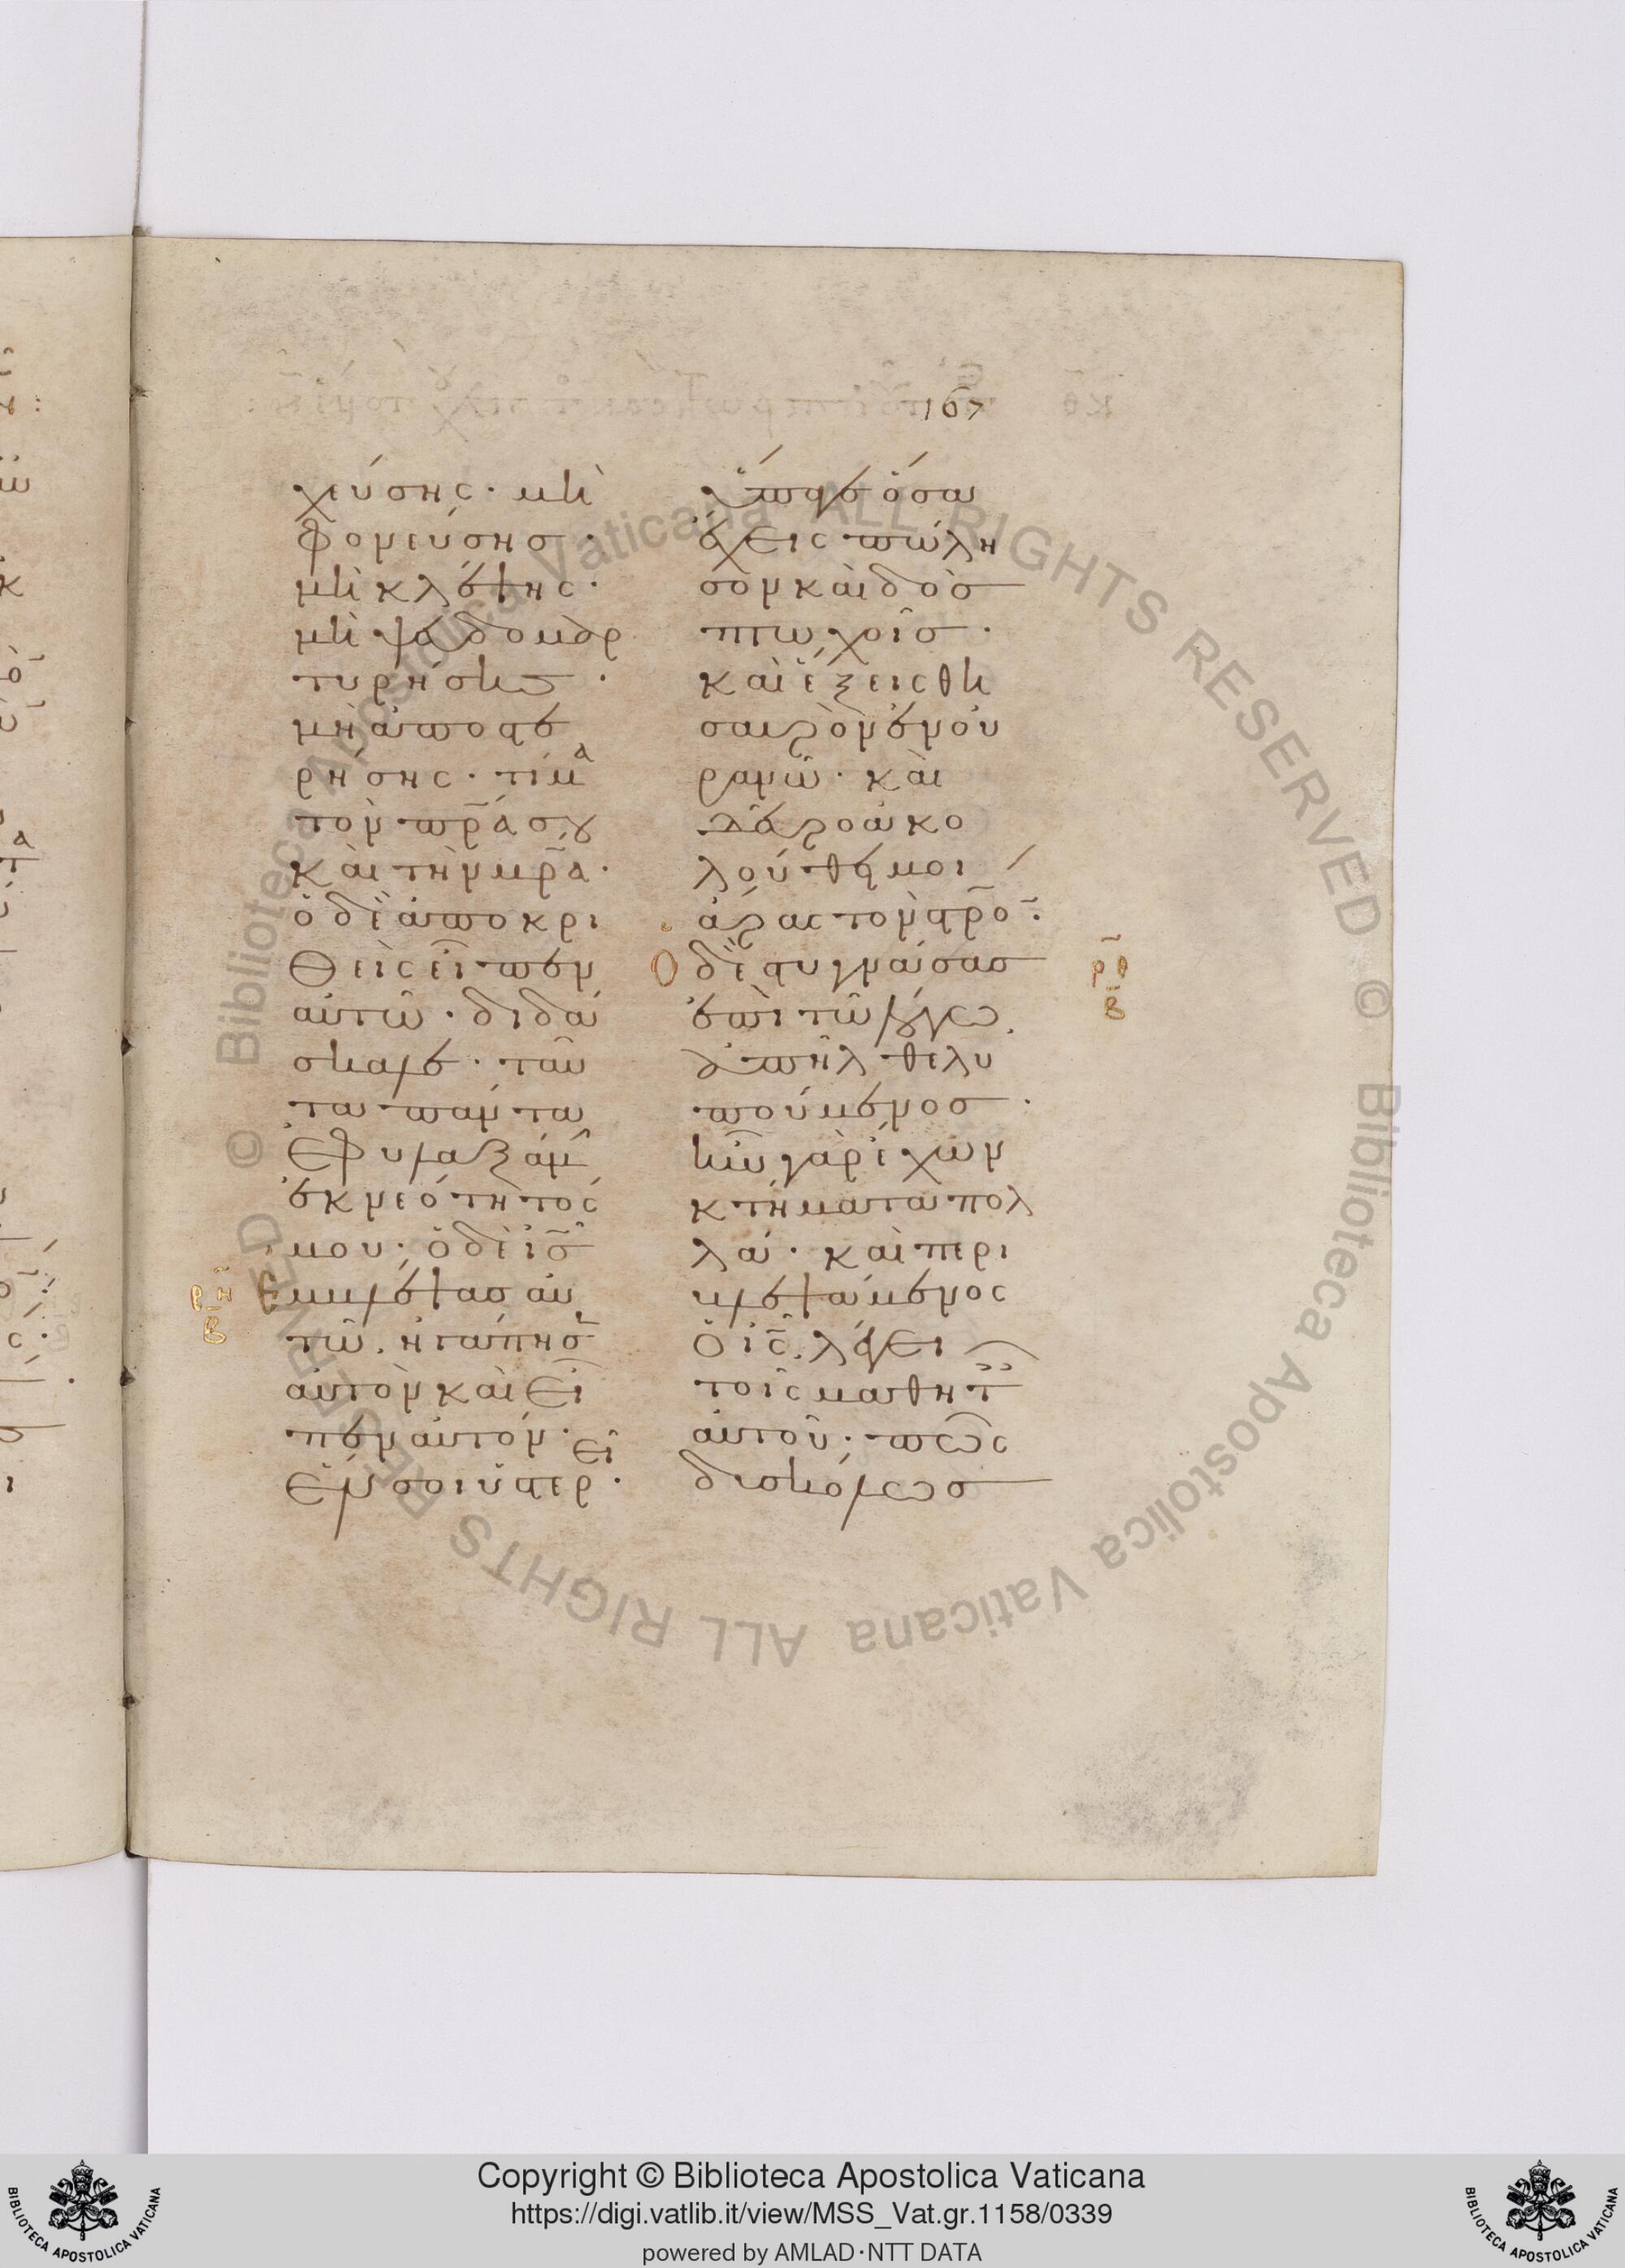 167
χεύσης· μὴ
φονεύσης·
μὴ κλέψης·
μὴ ψευδομαρ
τυρήσης·
μὴ ἀποστε
ρήσης· τίμα
τὸν πρ̅α σου
καὶ τὴν μρ̅α·
ὁ δὲ ἀποκρι
θεὶς εἶπεν
αὐτῶ· διδά
σκαλε· ταῦ
τα πάντα
ἐφυλαξάμην
ἐκ νεότητός
μου· ὁ δὲ ις̅
ρη̅
β
Εμβλέψας αὐ
τῶ. ἠγάπησεν
αὐτὸν καὶ εἶ
πεν αὐτόν· εἰ
Ἕν σοι ὑστερ·
ὕπαγε ὅσα
ἔχεις πώλη
σον καὶ δὸς
πτωχοῖς·
καὶ ἕξεις θη
σαυρὸν ἐν οὐ
ρανῶ· καὶ
δεῦρο ἀκο
λούθει μοι
ἄρας τὸν στρο̅ν·
Ο δὲ στυγνάσας
ρθ̅
β
ἐπὶ τῶ λόγω.
ἀπῆλθε λυ
πούμενος·
ἦν γὰρ ἔχων
κτήματα πολ
λά· καὶ περι
βλεψάμενος
Ὁ ις̅. λέγει
τοῖς μαθητ
αὐτοῦ· πῶς
δυσκόλως
Copyright © Biblioteca Apostolica Vaticana
https://digi.vatlib.it/view/MSS_Vat.gr.1158/0339
powered by AMLAD·NTT DATA